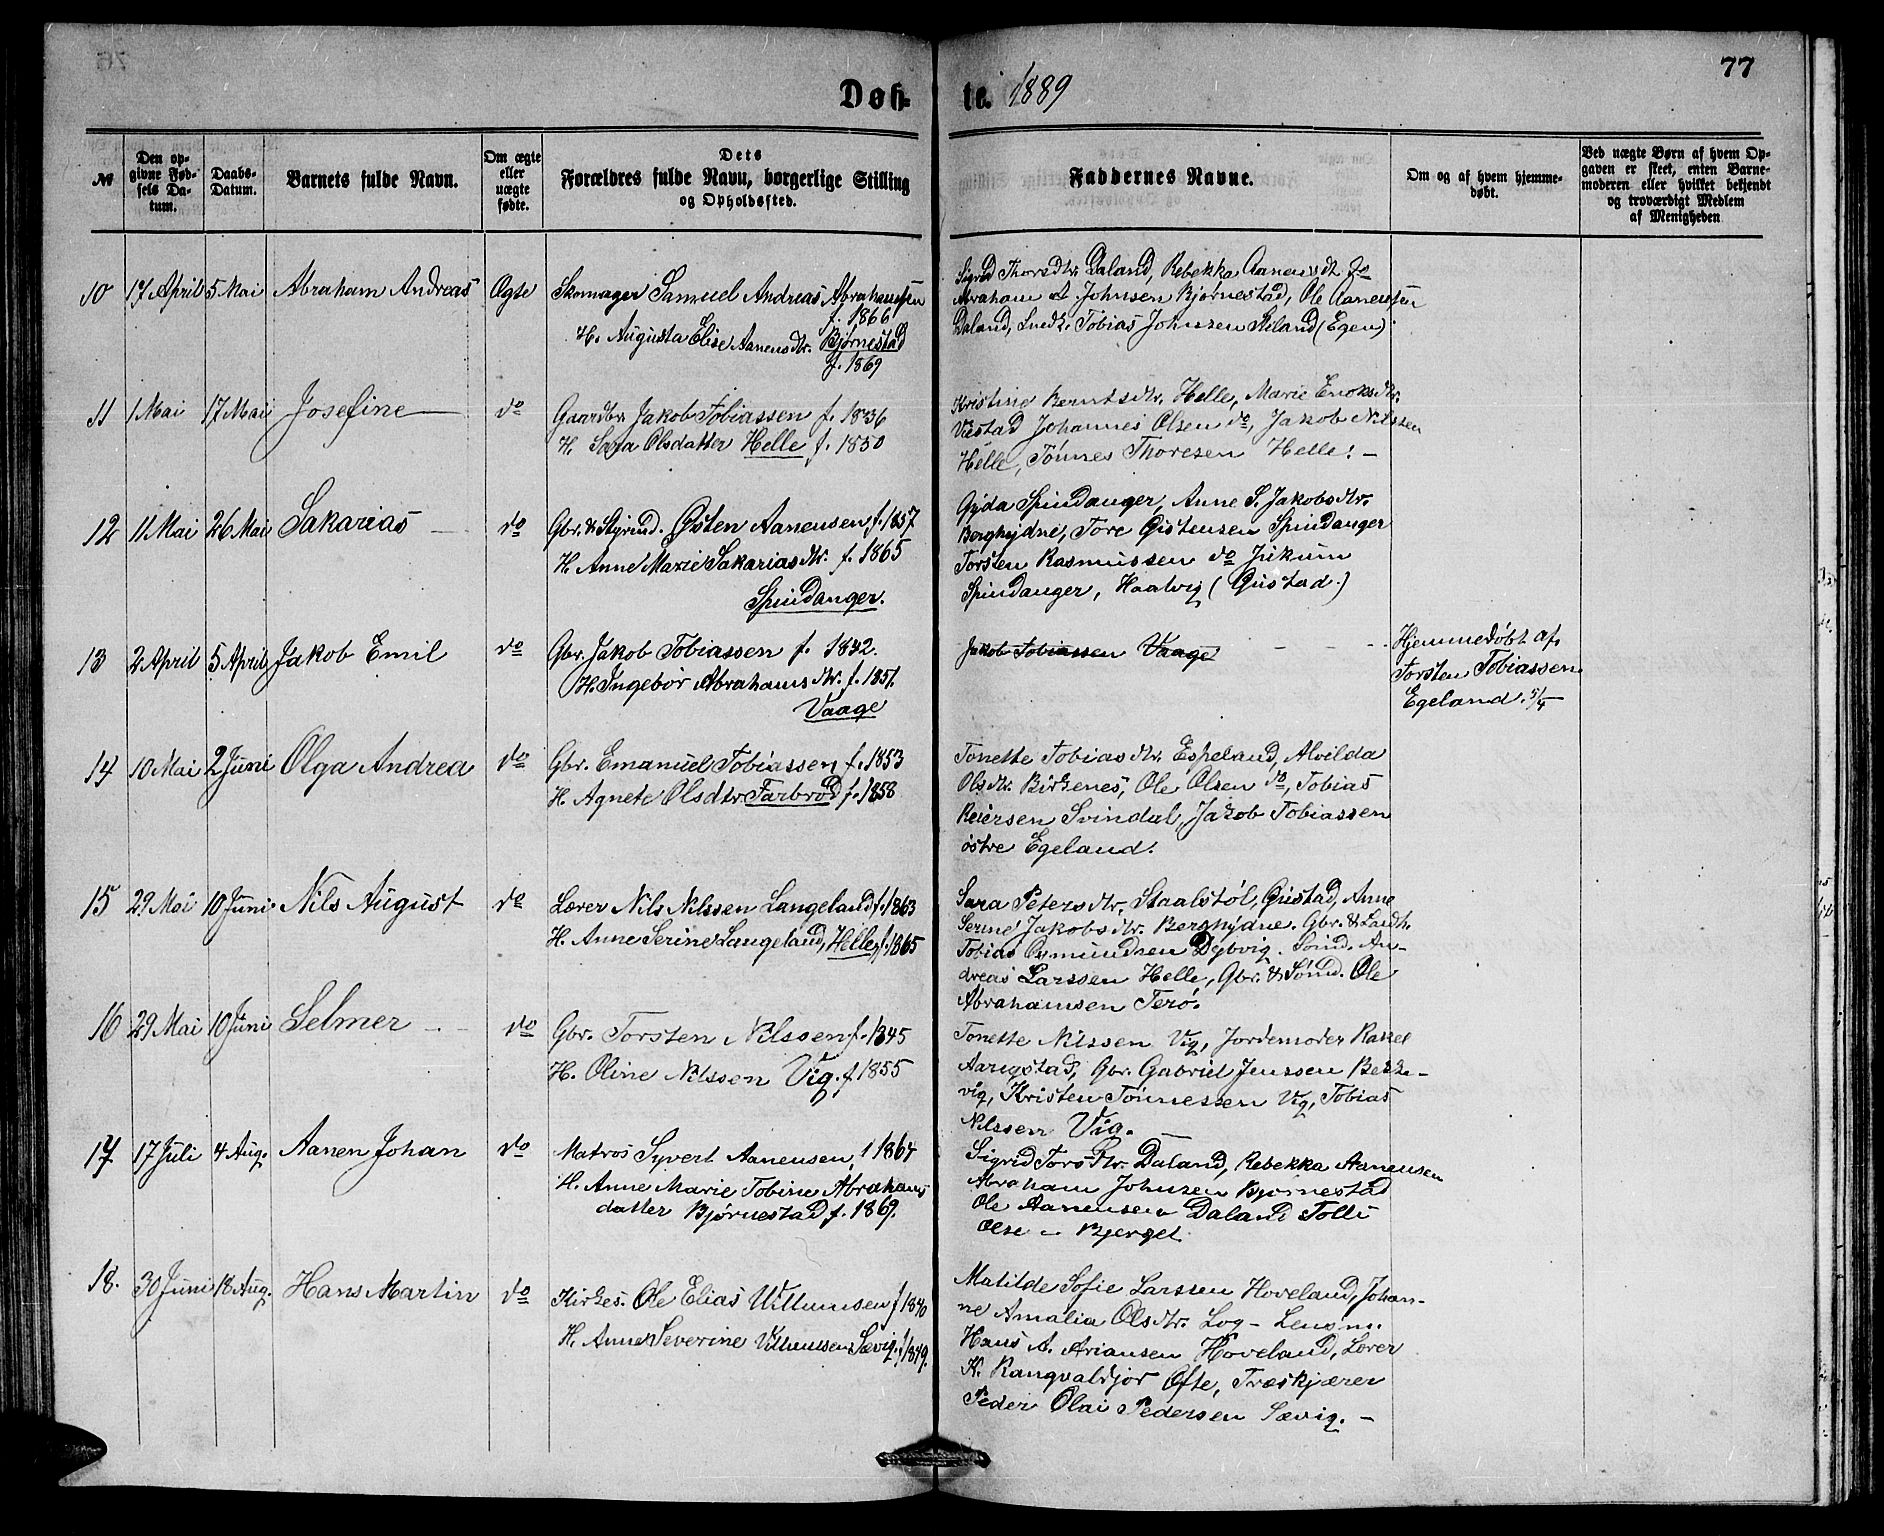 77
Døb- te. 1889
№
Den op-
givne Fød-
sels Da-
tum.
Daabs-
Datum.
Barnets fulde Navn.
Om ægte
eller
uægte
fødte.
Dets
Forældres fulde Navn, borgerlige Stilling
og Opholdssted.
Faddernes Navne.
Om og af hvem hjemme-
døbt.
Ved uægte Børn af hvem Op-
gaven er skeet, enten Barne-
moderen eller hvilket bekjendt
og troværdigt Medlem
af Menigheden
10 17 April 5 Mai Abraham Andreas Ægte
Skomager Samuel Andreas Abrahamsen
f. 1866
H. Augusta Elise Aanensdtr. Bjørnestad
f. 1869
Sigrid Thorsdtr. Daland, Rebekka Aanensdt do
Abraham A. Johnsen Bjørnestad, Ole Aanensen
Daland, Snedk. Tobias Johnsen Stiland (Egen).
11 1 Mai 17 Mai Josefine do
Gaardbr. Jakob Tobiassen f. 1836
H. Sara Olsdatter Helle f. 1850
Kristine Berntsdtr. Helle, Marie Enoksdtr.
Vaestad Johannes Olsen do, Jakob Nilssen
Helle, Tönnes Thoresen Helle. -
12 11 Mai 26 Mai Sakarias do
Gbr. & Styrmd. Østen Aanensen, f. 1857
H. Anne Marie Sakariasdtr. f. 1865
Spindanger.
Gyda Spindanger, Anne S. Jakobsdtr.
Berghydne, Tore Øistensen Spindanger
Torsten Rasmussen do Jukum
Spindanger, Haalvig (Qustad.)
13 2 April 5 April Jakob Emil do
Gbr. Jakob Tobiassen f. 1842.
H. Ingebor Abrahamsdtr. f. 1851.
Vaage
Jakob Tobiassen Vaage
Hjemmedøbt af
Torsten Tobiassen
Egeland. 5/4
14 10 Mai 2 Juni Olga Andrea do
Gbr. Emanuel Tobiassen f. 1853
H. Agnete Olsdtr Farbrod f. 1858
Tonette Tobiasdtr. Espeland, Alvilda
Olsdtr. Birkenes, Ole Olsen do, Tobias
Reiersen Svindal, Jakob Tobiassen
østre Egeland.
15 29 Mai 10 Juni Nils August do
Lærer Nils Nilssen Langeland f. 1863
H. Anne Serine Langeland, Helle f. 1865
Sara Petersdtr. Staalstøl, Quistad, Anne
Serine Jakobsdtr. Berghydne. Gbr. & Landh.
Tobias Osmundsen Dybvig. Sømd. An-
dreas Larssen Helle, Gbr. & Sømd. Ole
Abrahamsen Terö.
16 29 Mai 10 Juni Selmer do
Gbr. Torsten Nilssen f. 1845
H. Oline Nilssen Vig. f 1855
Tonette Nilssen Vig, Jordemoder Rakel
Aarigstad, Gbr. Gabriel Jenssen Bekke-
vig, Kristen Tönnessen Vig, Tobias
Nilssen Vig.
17 17 Juli 4 Aug. Aanen Johan do
Matros Syvert Aanensen, f 1864
H. Anne Marie Tobine Abrahams
datter Bjørnestad f. 1869.
Sigrid Torsdtr. Daland, Rebekka Aanensen
Abraham Johnsen Bjørnestad
Ole Aanensen Daland Tolli
Olse - Bjerget
18. 30 Juni 18 Aug. Hans Martin do
Kirkes. Ole Elias Villumsen f 1840
H. Anne Severine Villumsen Sævig. f 1849.
Matilde Sofie Larssen Hoveland, Johan-
ne Amalia Olsdtr. Log - Lensm.
Hans A. Ariansen Hoveland, Lærer
K. Rangvaldjor Ofte, Træskjærer
Peder Olai Pedersen Sævig. -